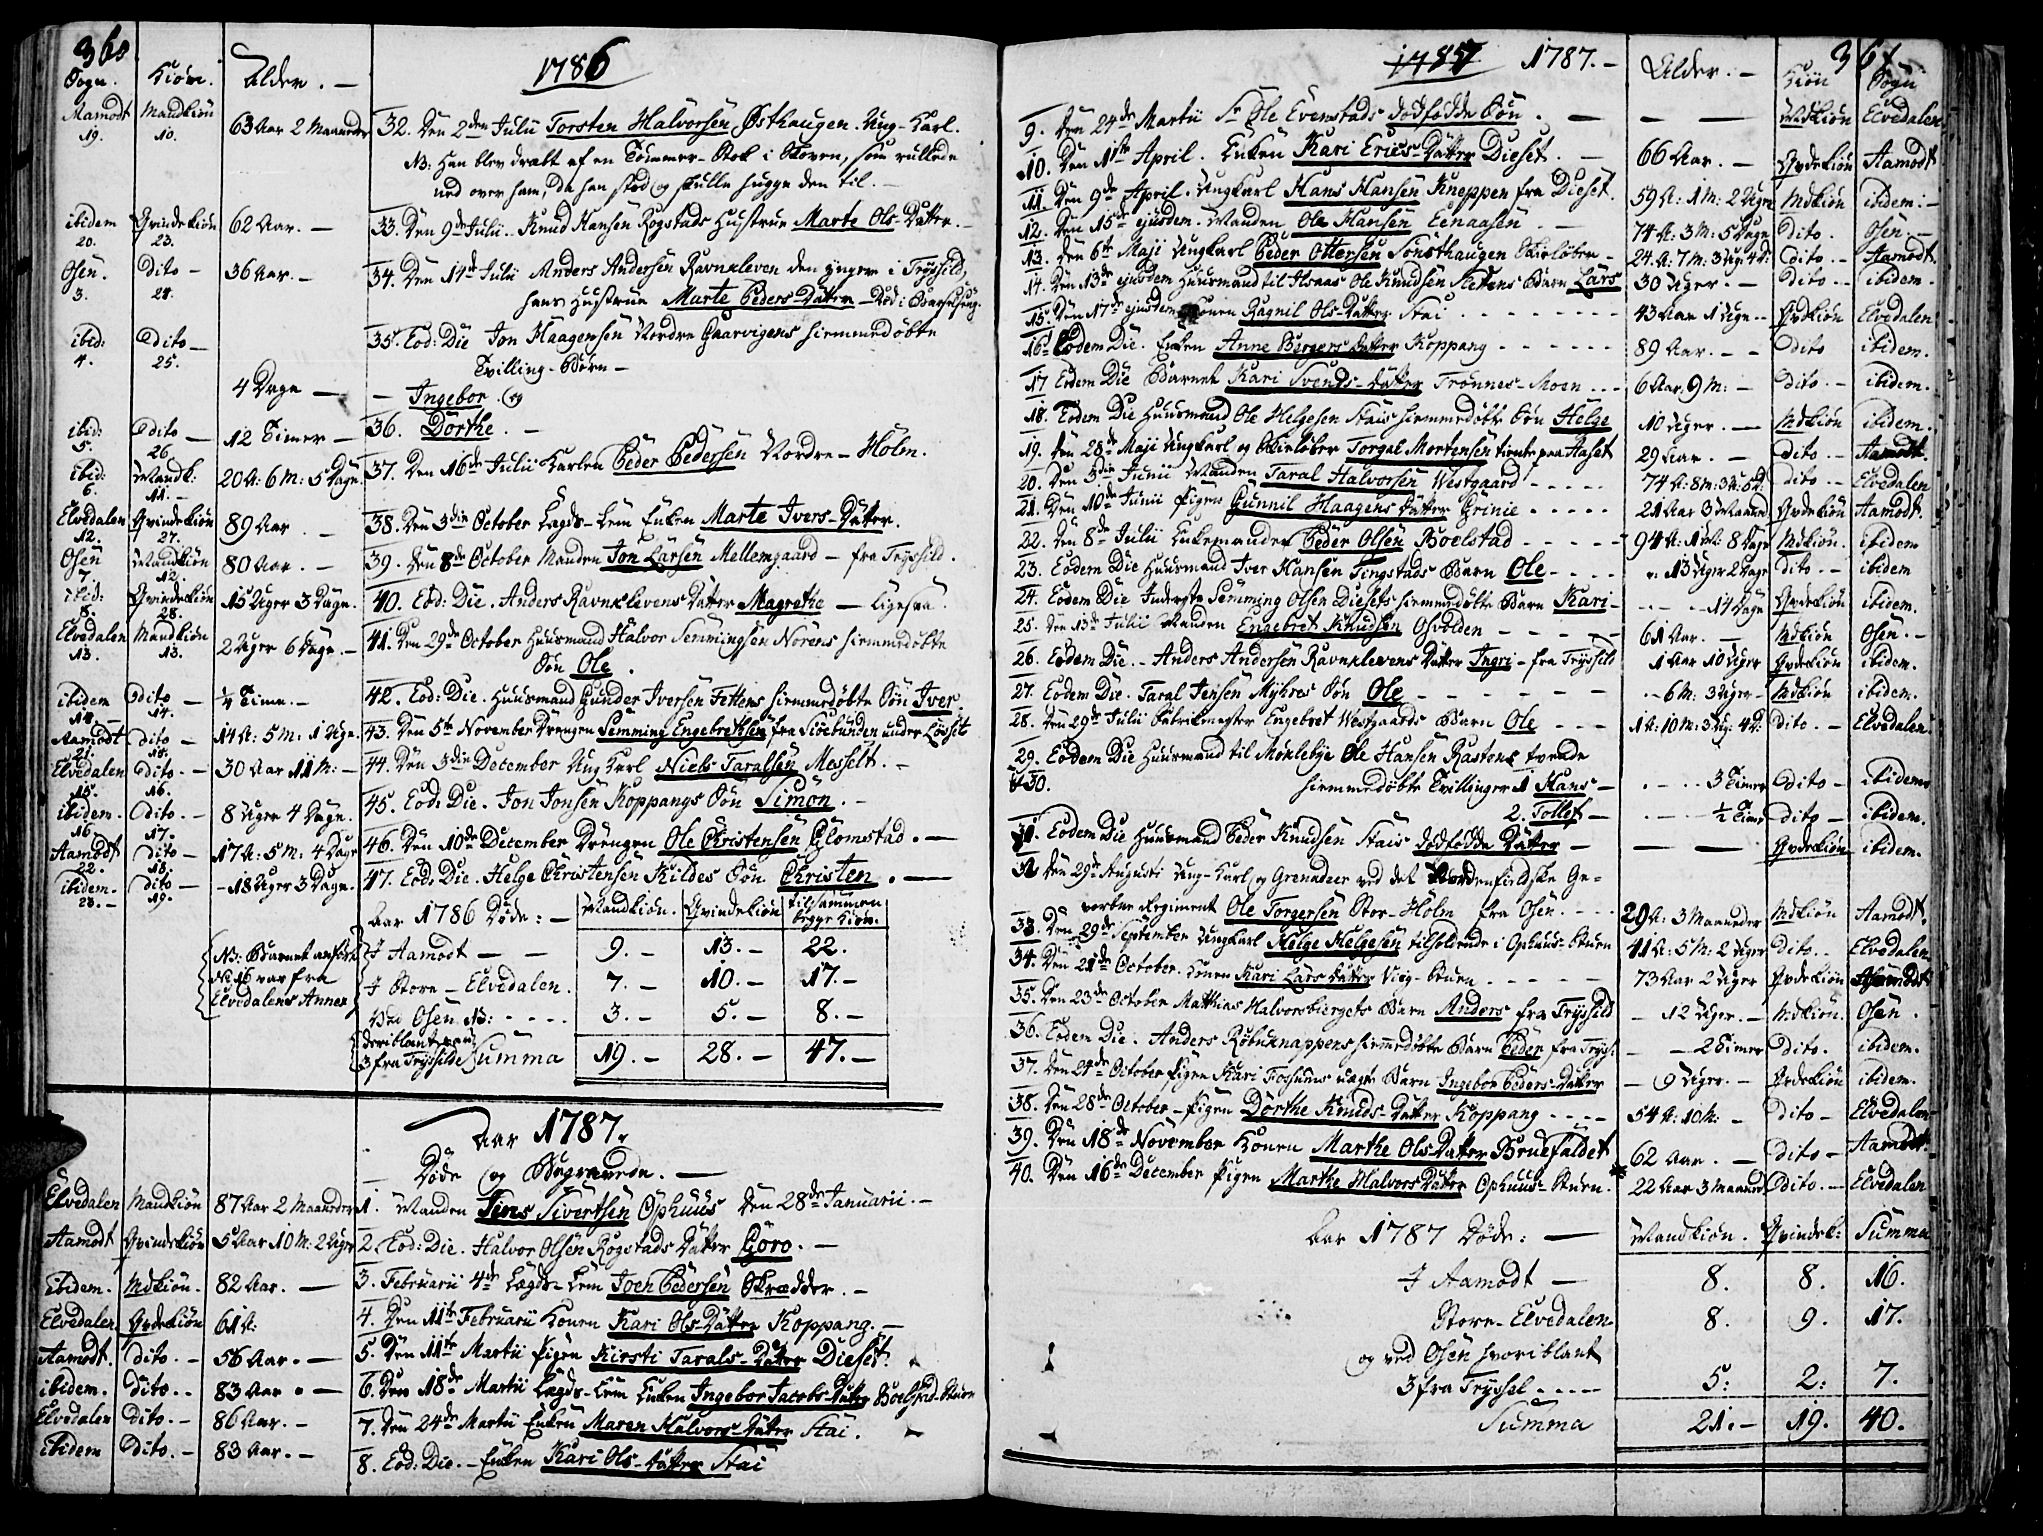 360
1786
Sogn. Kiøn. Alder. —
Aamodt Mandkiøn 63 Aar 2 Maaneder 32. Den 2den Julii Torsten Halvorsen Østhaugen. Ung-Karl.
19. 10.
NB: Han blev dræbt af en Tømmer-Stok i Skoven, som rullede
ned over ham, da han stod og skulle hugge den til. —
ibidem Qvindekiøn 62 Aar. — 33. Den 9de Julii. Knud Hansen Rogstads Hustrue Marte Ols-Datter. —
20. 23.
Osen. Dito — 36 Aar. — 34. Den 14de Julii Anders Andersen Ravnkleven den yngere i Trysild,
3. 24.
hans Hustrue Marte Peders-Datter — Død i Barselseng.
ibid: Dito — 35. Eod: Die Jon Haagensen Nordre Gaarvigens hiemmedøbte
4. 25.
Tvilling-Børn —
4 Dage — — Ingebor. og
ibid: Dito — 12 Timer — 36. Dorthe. —
5. 26
Ibid: Mandk: 20 A: 6 M: 5 Dage. 37. Den 16de Julii Karlen Peder Pedersen Nordre-Holm.
6. 11. —
Elvedalen Qvindekiøn 89 Aar. — 38. Den 3die October Lægds-Lem Enken Marte Ivers-Datter.
12. 27.
Osen Mandkiøn 80 Aar. — 39. Den 8de October Manden Jon Larsen Mellemgaard — fra Trysild.
7. 12.
ibid: Qvindekiøn 15 Uger 3 Dage. 40. Eod: Die. Anders Ravnklevens Datter Magrethe — Ligesaa.
8. 28.
Elvedalen Mandkiøn 2 Uger 6 Dage. — 41. Den 29de October Huusmand Halvor Semmingsen Norens hiemmedøbte
13. 13.
Søn Ole.
ibidem Dito — ¼ Time. — 42. Eod: Die. Huusmand Gunder Iversen Fettens hiemmedøbte Søn Iver.
14. 14.
Aamodt Dito — 14 A: 5 M: 1 Uge. 43. Den 5te November Drengen Semming Engebrethsen fra Siøebunden under Løsset
21. 15.
Elvedalen Dito. — 30 Aar 11 M: — 44. Den 3die December Ung Karl Niels Taralsen Messelt. —
15. 16.
ibidem. Dito. — 8 Uger 4 Dage. 45. Eod: Die. Jon Jonsen Koppangs Søn Simon. —
16. 17.
Aamodt Dito — 17 A: 5 M: 4 Dage 46. Den 10de December Drengen Ole Christensen Glomstad. —
22. 18.
ibidem. Dito — — 18 Uger 3 Dage. 47. Eod: Die. Helge Christensen Kildes Søn Christen. —
23. — 19.
Aar 1786 Døde: — Mandkiøn. Qvindekiøn tilsammen begge Kiøn.
NB: Barnet anført No 16 var fra Elvedalens Annex
I Aamodt — — 9. — 13. — 22.
I Store-Elvedalen. 7. — 10. — 17. —
Ved Osen NB: 3. — 5. — 8. —
3 fra Trysilde Summa 19. — 28. — 47. —
Aar 1787.
Døde og Begravede. —
Elvedalen Mandkiøn 87 Aar 2 Maaneder 1. Manden Siver Sivertsen Ophuus den 28de Januarii. —
Aamodt Qvindekiøn 5 Aar 10 M: 2 Uger 2. Eod: Die. Halvor Olsen Rogstads Datter Goro. —
ibidem. Mdkiøn. 82 Aar. — 3. Februarii 4de Lægds-Lem Joen Pedersen Skrædder. —
Elvedalen Qvdekiøn 61 A: 4. Den 11te Februarii Konen Kari Ols-Datter Koppang. —
Aamodt. Dito. — 56 Aar. — 5. Den 11te Martii Pigen Kirsti Tarals-Datter Dieset.
ibidem. Dito. 83 Aar. — 6. Den 18de Martii Lægds-Lem Enken Ingebor Jacobs-Datter Boelstad-Stuen
Elvedalen Dito. — 86 Aar. — 7. Den 24de Martii Enken Maren Halvors-Datter Stai.
ibidem Dito. — 83 Aar. — 8. Eod: Die. — Enken Kari Ols-Datter Stai
1787 1787. — Alder. — Kiøn Sogn
361
9. Den 24de Martii Sr Ole Evenstads dødfødde Søn. — — — Mdkiøn Elvedalen.
10. Den 1ste April. Enken Kari Erics-Datter Dieset. — 66 Aar. — Qvdekiøn Aamodt
11. Den 9de April. Ungkarl Hans Hansen Kneppen fra Dieset. 59 A: 1 M: 2 Uger Mdkiøn ibidem. —
12. Den 15de ejusdem. Manden Ole Hansen Eenaasen — 74 A: 3 M: 5 Dage Dito. Osen. —
13. Den 6te Maji Ungkarl Peder Ottersen Sønsthaugen Skieløber — 24 A: 7 M: 3 Ug: 4 D: Dito. — Aamodt.
14. Den 13de ejusdem Huusmand til Horaas Ole Knudsen Slettens Barn Lars 30 Uger. — Dito. ibidem.
15. Den 17de ejusdem Konen Ragnil Ols-Datter Stai 43 Aar 1 Uge. — Qvdkiøn Elvedalen
16. Eodem Die. Enken Anne Bergers Datter Koppang 89 Aar. — Dito ibidem.
17 Eodem Die Barnet Kari Svends-Datter Trønnes-Moen 6 Aar 9 M: — Dito. — ibidem.
18. Eodem Die Huusmand Ole Helgesen Stais hiemmedøbte Søn Helge 10 Uger. — Mdkiøn ibidem.
19. Den 28de Maji Ungkarl og Skieløber Torgal Mortensen tiente paa Aaset 29 Aar. — Dito. — Aamodt.
20. Den 3die Junii Manden Taral Halvorsen Westgaard 74 A: 8 M: 3 U: 5 D: Dito. — Elvedalen
21. Den 10de Junii Pigen Gunnil Haagens Datter Grinie 21 Aar 3 Maaned Qvdekiøn Aamodt.
22. Den 8de Julii Enkemanden Peder Olsen Boelstad 94 A: 8 Dage Mdkiøn. ibidem
23. Eodem Die Huusmand Iver Hansen Tingstads Barn Ole 13 Uger 2 Dage Dito. — ibidem
24. Eodem Die Inderste Semming Olsen Diesets hiemmedøbte Barn Kari 14 Dage Qvdekiøn ibidem.
25. Den 13de Julii Manden Engebret Knudsen Osvolden 61 Aar. — Mdkiøn Osen. —
26. Eodem Die. — Anders Andersen Ravnklevens Datter Ingri — fra Trysild 1 Aar 10 Uger Qvdekiøn ibidem.
27. Eodem Die. Taral Jensen Myhres Søn Ole 6 M: 3 Uger — Mdkiøn ibidem.
28. Den 29de Julii Fabrikmester Engebret Westgaards Barn Ole 1 A: 10 M: 3 Ug: 4 D: Dito. — Elvedalen.
29. Eodem Die Huusmand til Møklebye Ole Hansen Rastens tvende
& 30. hiemmedøbte Tvillinger 1 Hans — 3 Timer Dito — ibidem
2. Tollef — ½ Time Dito — ibidem.
31. Eodem Die Huusmand Peder Knudsen Stais dødfødde Datter — — — Qvdekiøn ibidem.
32 Den 29de Augusti Ung-Karl og Grenadeer ved det Nordenfieldske Ge-
vorbne Regiment Ole Torgersen Stor-Holm fra Osen. 29 A: 3 Maaneder Mdkiøn Aamodt.
33. Den 29de September Ungkarl Helge Helgesen tilholdende i Ophuus-Stuen 41 A: 5 M: 2 Uger Dito. Elvedalen
34. Den 21de October. Konen Kari Lars Datter Viig-Stuen 73 Aar 2 Uger Qvdekiøn Aamodt
35. Den 23de October Matthias Halvorsbiergets Barn Anders fra Trysild — 12 Uger. — Mdkiøn. Osen.
36. Eodem Die. Anders Røbuknappens hiemmedøbte Barn Peder fra Trys: — 2 Timer Dito. ibidem.
37. Den 24de October Pigen Kari Fossums uægte Barn Ingebor Peders-Datter — 9 Uger. — Qvdekiøn ibidem.
38. Den 28de October — Pigen Dorthe Knuds-Datter Koppang 54 A: 10 M: — Dito — Elvedalen
39. Den 18de November Konen Marthe Ols-Datter Bruefaldet 62 Aar. — Dito — Aamodt.
40. Den 16de December Pigen Marthe Halvors Datter Ophuus-Stuen. 22 Aar 3 Maaned Dito. — Elvedalen
Aar 1787 Døde: — Mandkiøn. Qvindek: Summa
I Aamodt — 8. 8. 16.
Store-Elvedalen 8. 9. 17.
og ved Osen hvoriblant
3 fra Tryssel 5: 2: 7.
Summa 21. — 19. 40.